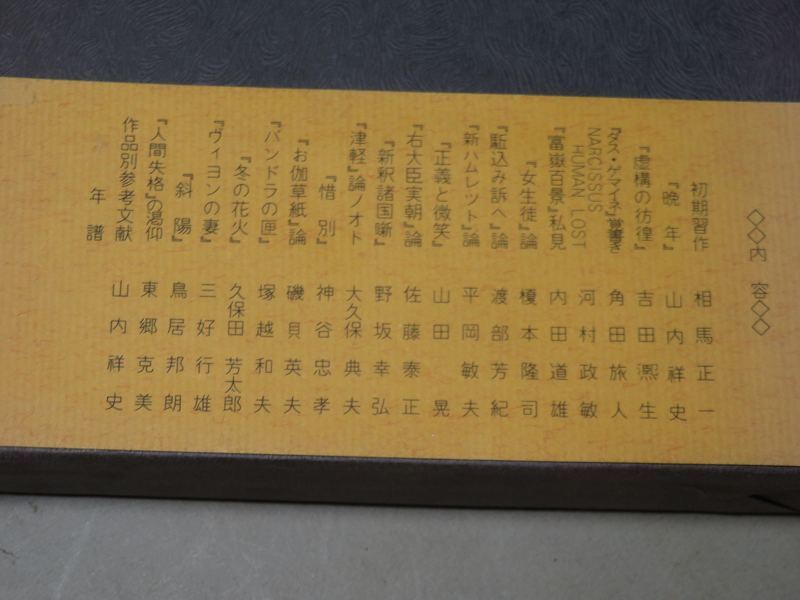 ◇◇内 容◇◇
初期習作 相馬正一
『晩 年』 山内祥史
『虚構の彷徨』 吉田凞生
『ダス・ゲマイネ』覚書き 角田旅人
NARCISSUS
HUMAN LOST 河村政敏
『富嶽百景』私見 内田道雄
『女生徒』論 榎本隆司
『駈込み訴へ』論 渡部芳紀
『新ハムレット』論 平岡敏夫
『正義と微笑』 山田 晃
『右大臣実朝』論 佐藤泰正
『新釈諸国噺』 野坂幸弘
『津軽』論ノオト 大久保典夫
『惜 別』 神谷忠孝
『お伽草紙』論 磯貝英夫
『パンドラの匣』 塚越和夫
『冬の花火』 久保田芳太郎
『ヴィヨンの妻』 三好行雄
『斜 陽』 鳥居邦朗
『人間失格』の渇仰 東郷克美
作品別参考文献 山内祥史
年 譜